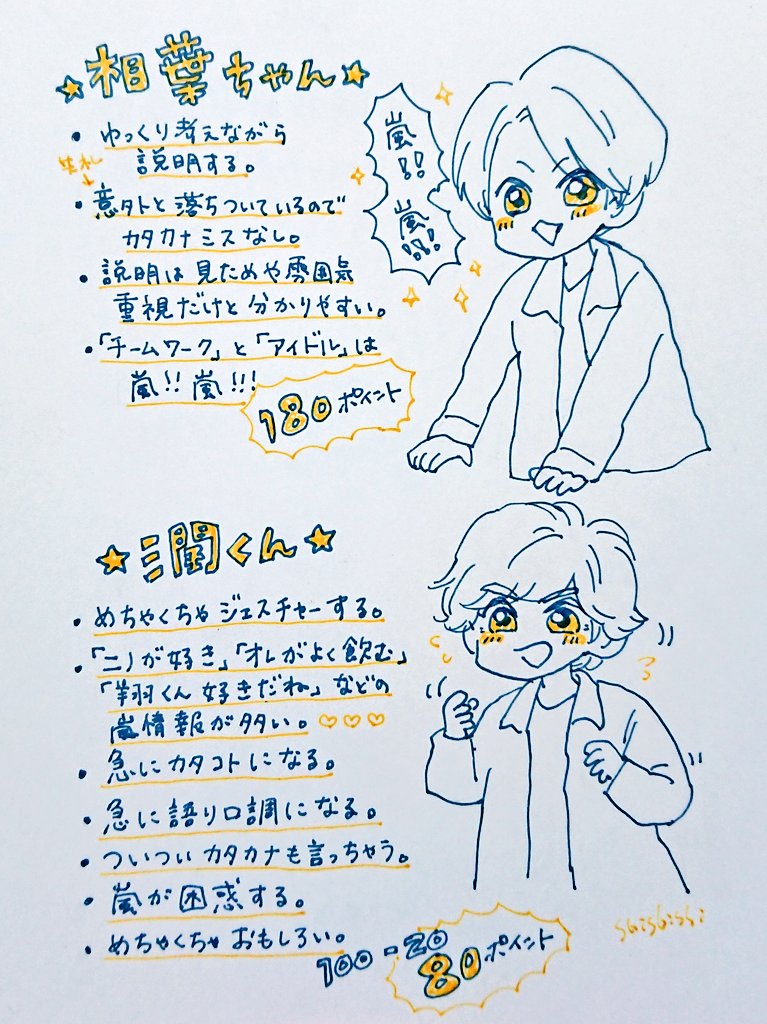 ★相葉ちゃん★
・ゆっくり考えながら
説明する。
失礼
・意外と落ちついているので
カタカナミスなし。
・説明は見ためや雰囲気
重視だけど分かりやすい。
・「チームワーク」と「アイドル」は
嵐!! 嵐!!!
180ポイント
嵐!!
嵐!!!
★潤くん★
・めちゃくちゃジェスチャーする。
・「ニノが好き」「オレがよく飲む」
「翔くん好きだね」などの
嵐情報が多い。♡♡♡
・急にカタコトになる。
・急に語り口調になる。
・ついついカタカナも言っちゃう。
・嵐が困惑する。
・めちゃくちゃおもしろい。
100-20
80ポイント